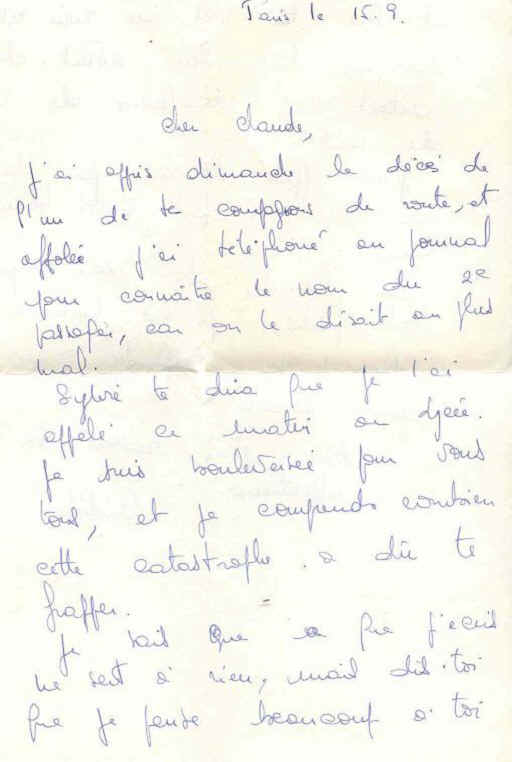 Paris le 15.9.
Cher Claude,
J'ai appris dimanche le décès de
l'un de te compagnons de route, et
affolée j'ai téléphoné au journal
pour connaître le nom du 2e
passager, car on le disait au plus
mal.
Sylvie te dira que je l'ai
appelé ce matin au lycée.
Je suis bouleversée pour vous
tous, et je comprends combien
cette catastrophe a dû te
frapper.
Je sais que ce que j'écris
ne sert à rien, mais dis-toi
que je pense beaucoup à toi